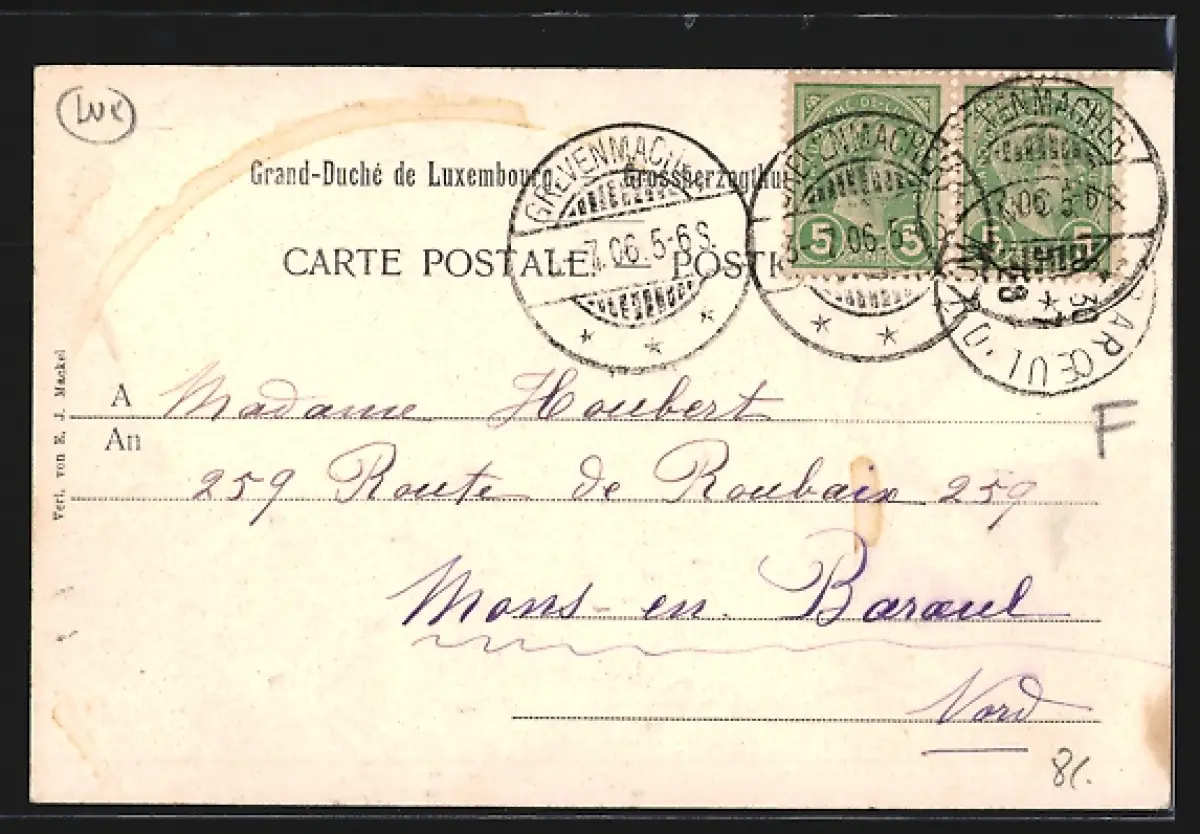 Lux
Grand-Duché de Luxembourg. Grossherzogthu
CARTE POSTALE. — POSTK
GREVENMACHE
7.06.5-6S.
GREVENMACHE
7.06.5-6S
VENMACHER
.06.5-6
5 5
5 5
BARŒUL
A Madame Houbert
An
259 Route de Roubaix 259
Mons-en-Barœul
Nord
F
Verl. von E. J. Mackel